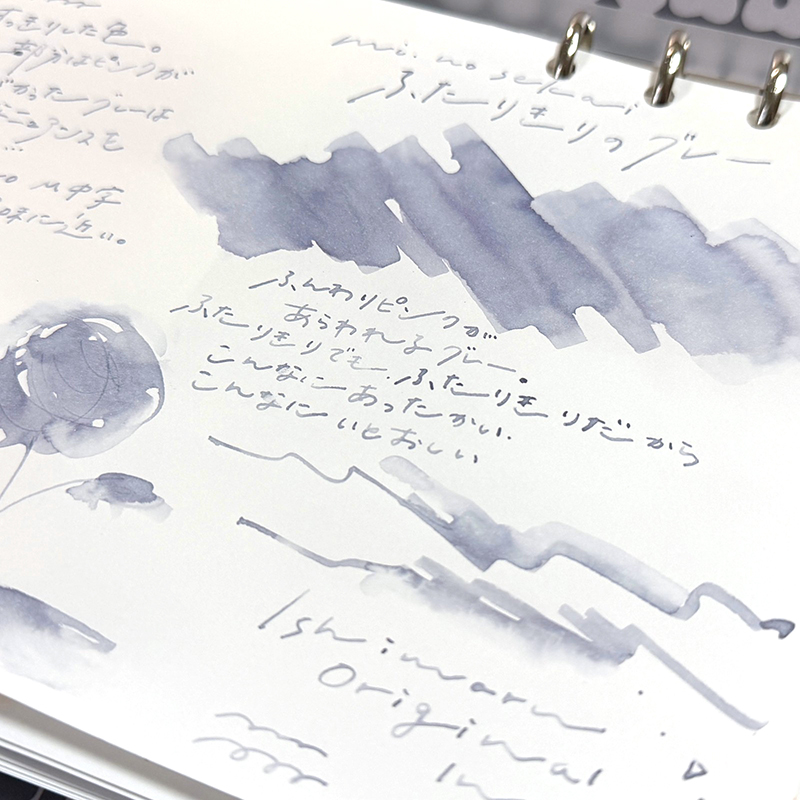 すっきりした色。
ピンクが
グレーは
ニュアンスを
M 中字
に近い。
mi. no sekai
ふたりきりのグレー
ふんわりピンクが
あらわれるグレー。
ふたりきりでも、ふたりきりだから
こんなにあったかい。
こんなにいとおしい
Ishimaru
Original
In